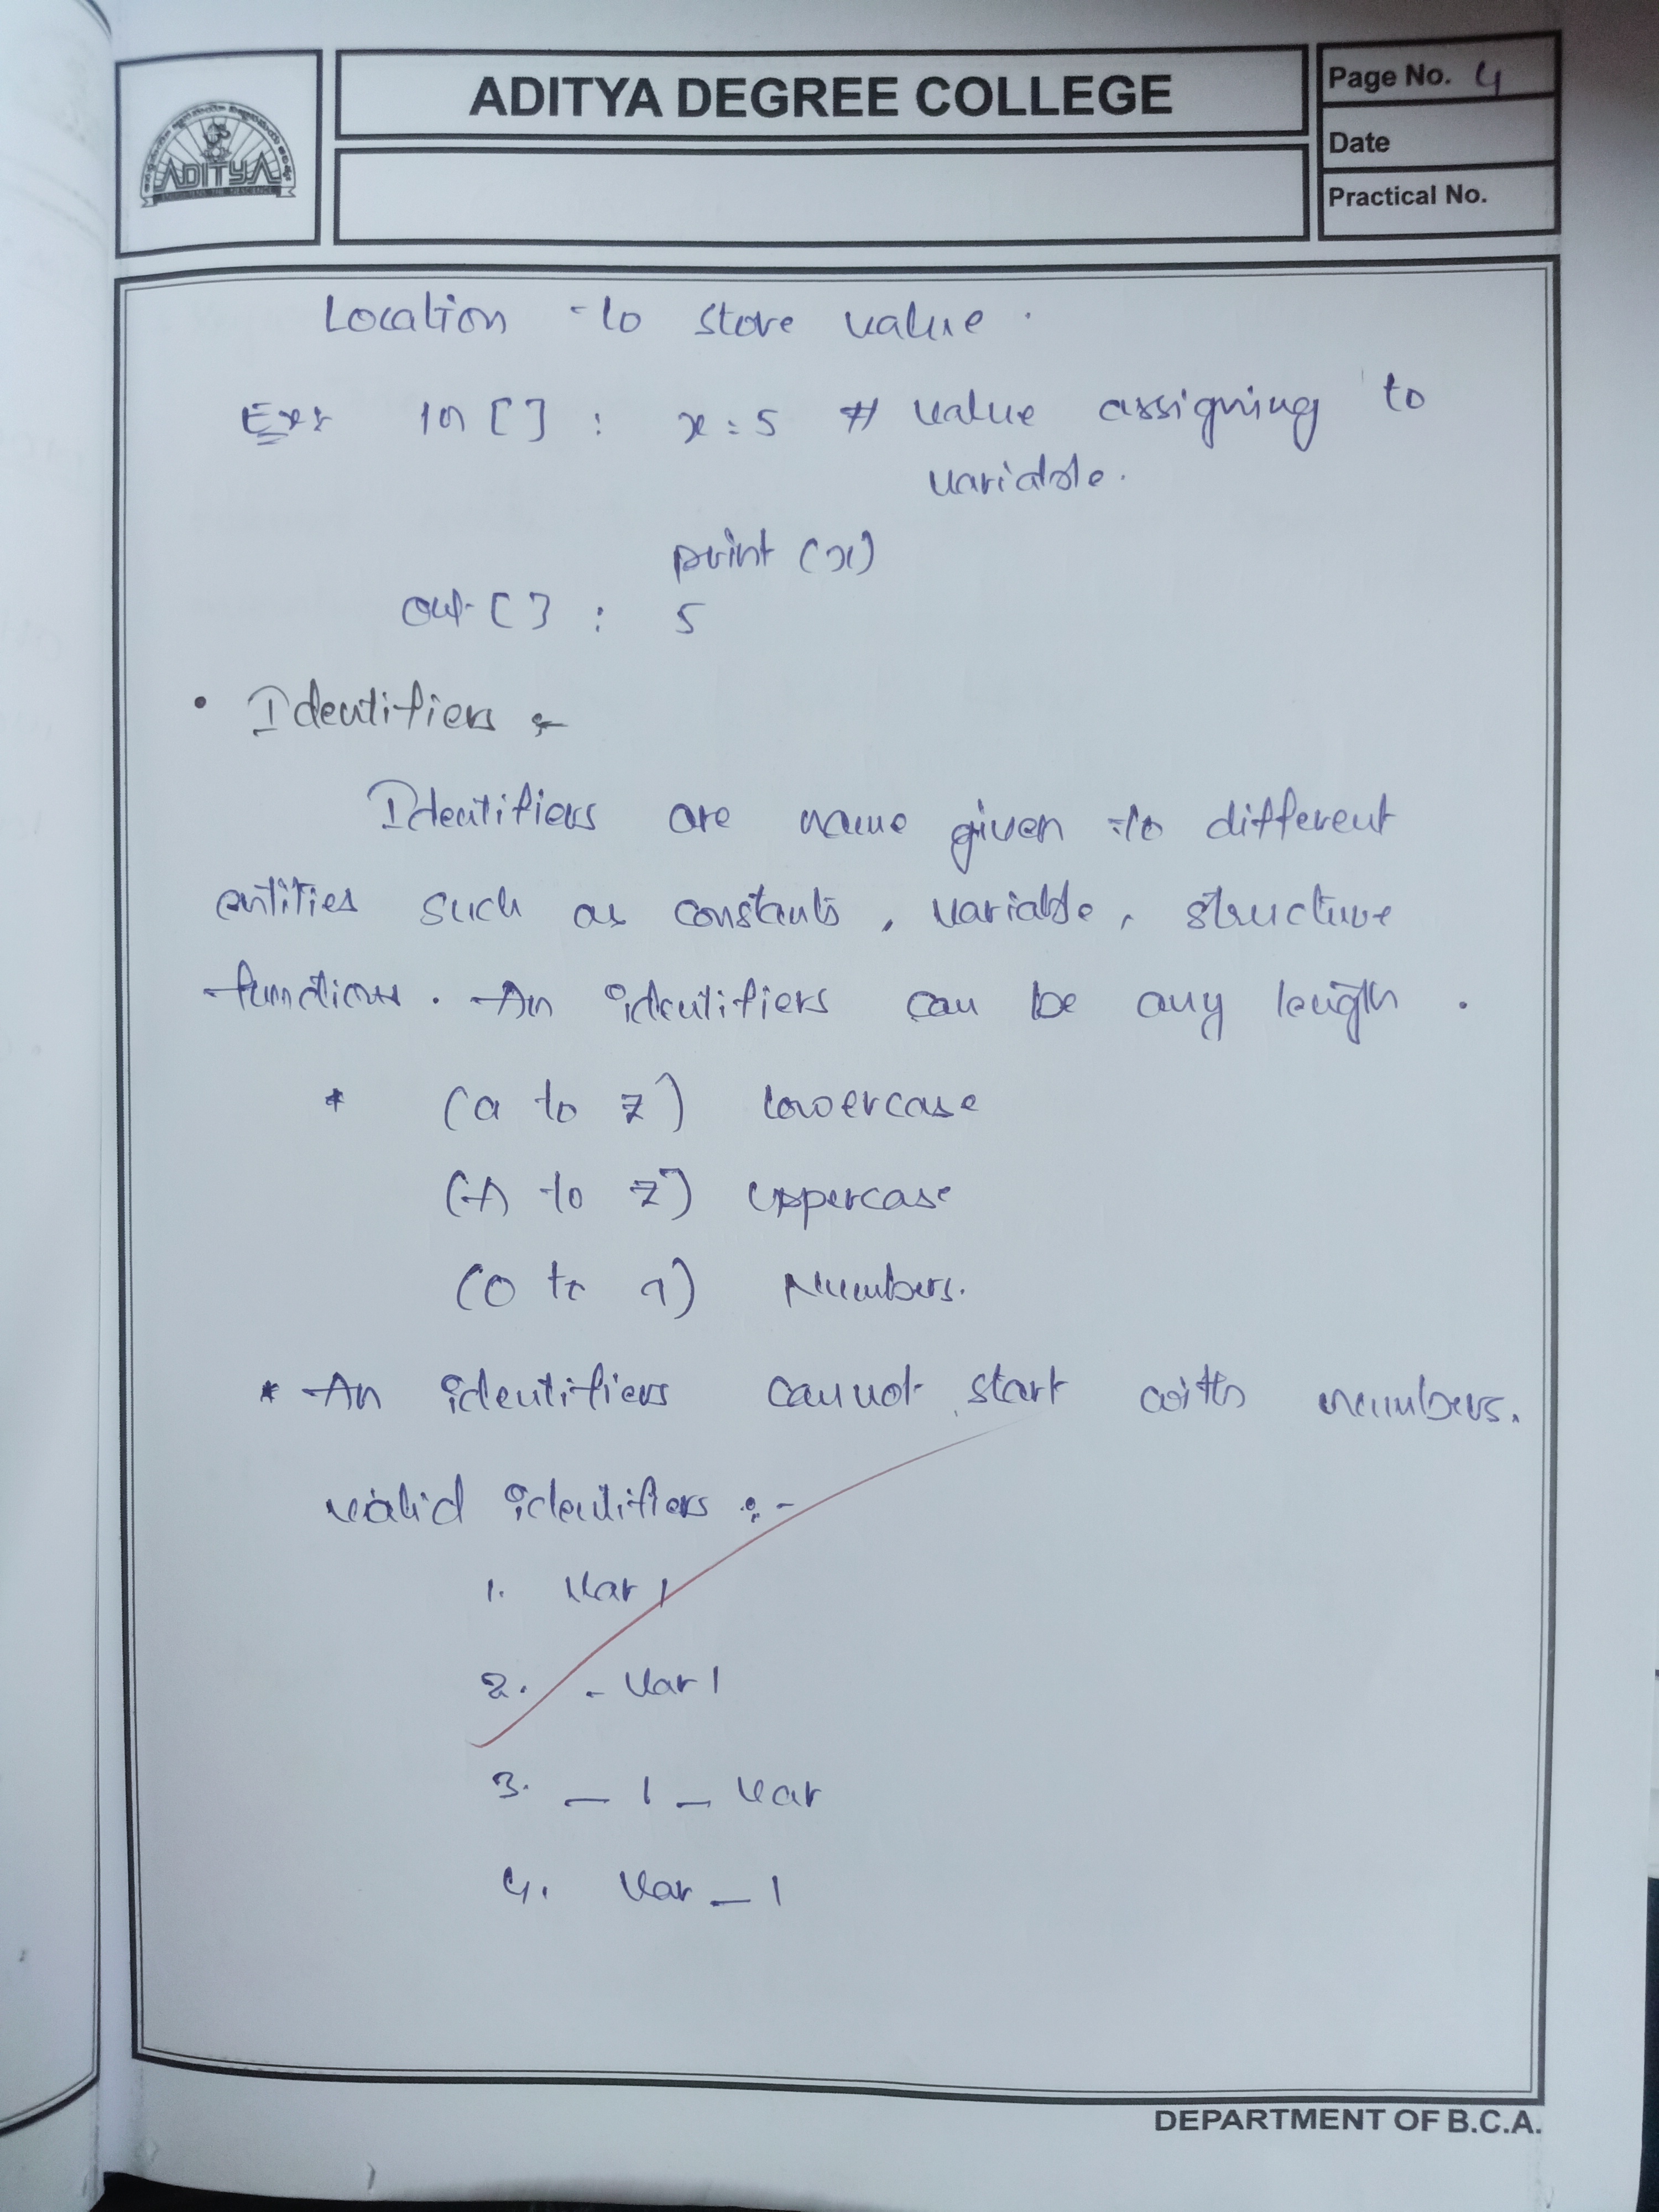 ADITYA DEGREE COLLEGE
Page No. 4
Date
Practical No.
ADITYA
Location to store value.
Ex:- In [] : x = 5 # value assigning to
variable.
print (x)
out [] : 5
• Identifiers :-
Identifiers are name given to different
entities such as constants, variable, structure
functions. An identifiers can be any length.
* (a to z) lowercase
(A to Z) uppercase
(0 to 9) Numbers.
* An identifiers cannot start with numbers.
valid identifiers :-
1. Var 1
2. _ Var 1
3. _ 1 _ Var
4. Var _ 1
DEPARTMENT OF B.C.A.